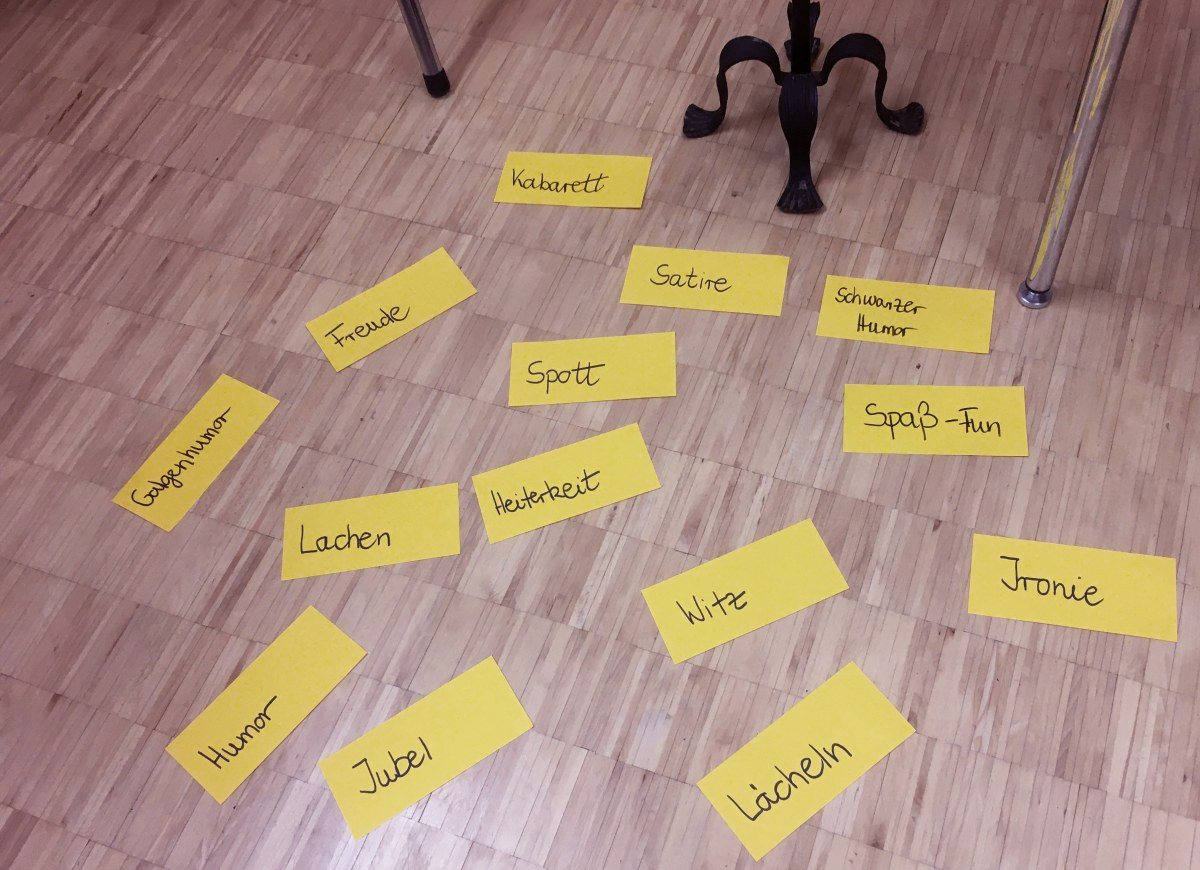 Kabarett
Satire
Schwarzer
Humor
Freude
Spott
Spaß-Fun
Galgenhumor
Heiterkeit
Lachen
Witz
Ironie
Humor
Jubel
Lächeln